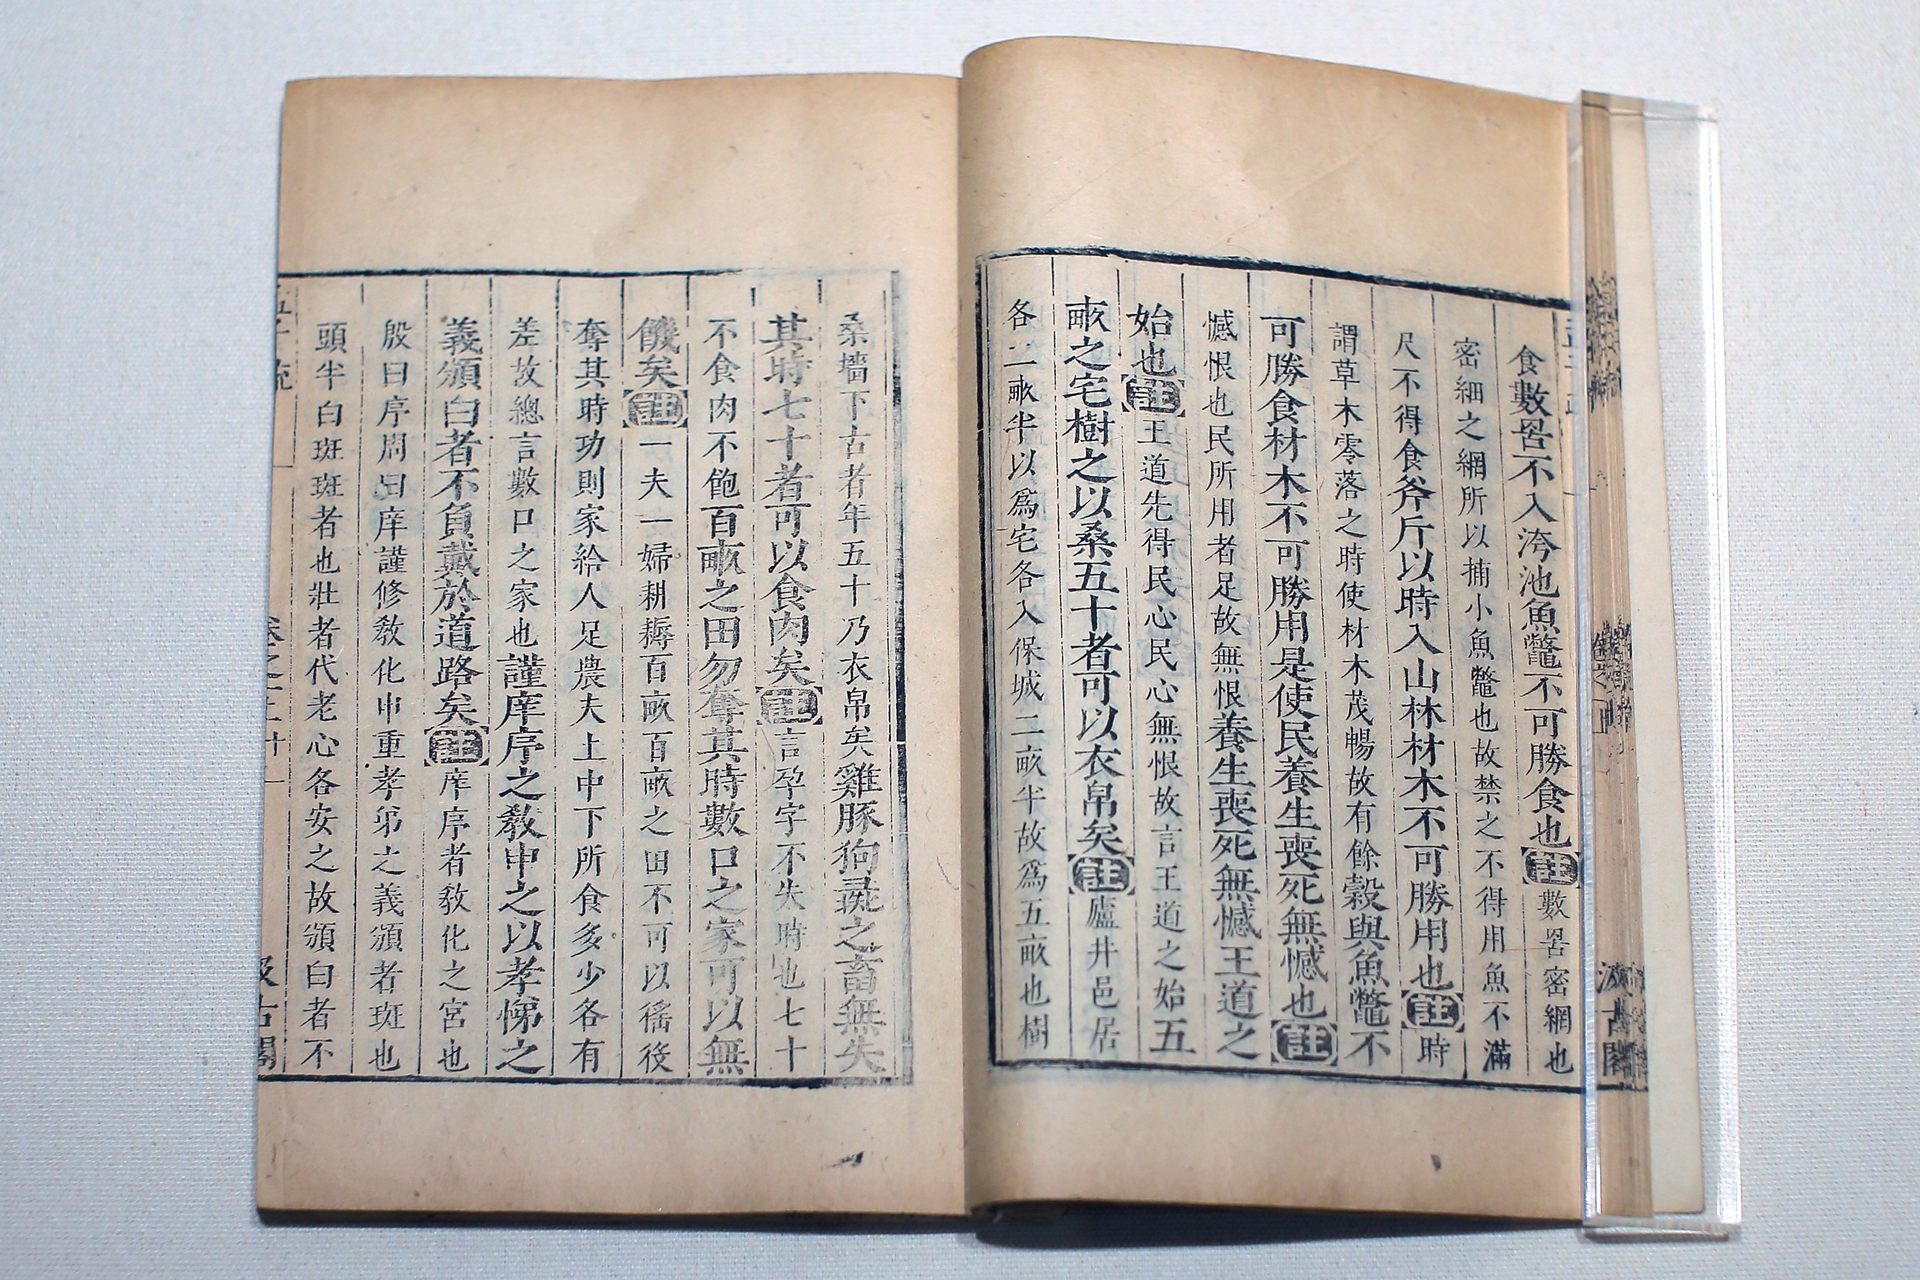 食數罟不入洿池魚鼈不可勝食也註數罟密網也
密細之網所以捕小魚鼈也故禁之不得用魚不滿
尺不得食斧斤以時入山林材木不可勝用也註時
謂草木零落之時使材木茂暢故有餘穀與魚鼈不
可勝食材木不可勝用是使民養生喪死無憾也註
憾恨也民所用者足故無恨養生喪死無憾王道之
始也註王道先得民心民心無恨故言王道之始五
畝之宅樹之以桑五十者可以衣帛矣註廬井邑居
各二畝半以爲宅各入保城二畝半故爲五畝也樹
桑墻下古者年五十乃衣帛矣雞豚狗彘之畜無失
其時七十者可以食肉矣註言孕字不失時也七十
不食肉不飽百畝之田勿奪其時數口之家可以無
饑矣註一夫一婦耕耨百畝百畝之田不可以徭役
奪其時功則家給人足農夫上中下所食多少各有
差故總言數口之家也謹庠序之教申之以孝悌之
義頒白者不負戴於道路矣註庠序者教化之宮也
殷曰序周曰庠謹修教化申重孝弟之義頒者斑也
頭半白斑斑者也壯者代老心各安之故頒白者不
汲古閣